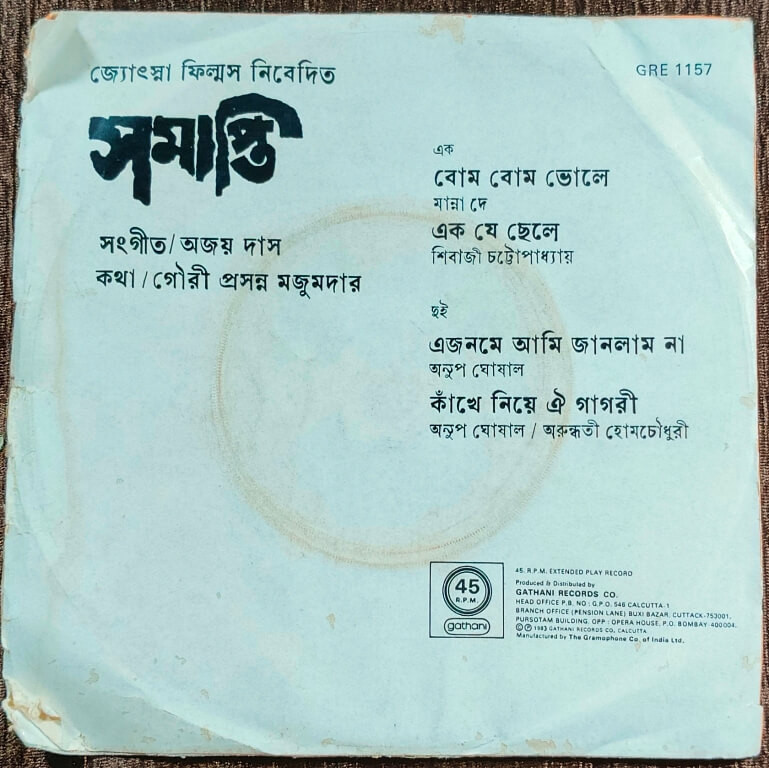 জ্যোৎস্না ফিল্মস নিবেদিত
GRE 1157
সমাপ্তি
সংগীত/অজয় দাস
কথা/গৌরী প্রসন্ন মজুমদার
এক
বোম বোম ভোলে
মান্না দে
এক যে ছেলে
শিবাজী চট্টোপাধ্যায়
দুই
এজনমে আমি জানলাম না
অনুপ ঘোষাল
কাঁখে নিয়ে ঐ গাগরী
অনুপ ঘোষাল / অরুন্ধতী হোমচৌধুরী
45
R.P.M.
gathani
45. R.P.M. EXTENDED PLAY RECORD
Produced & Distributed by
GATHANI RECORDS CO.
HEAD OFFICE P.B. NO : G.P.O. 546 CALCUTTA-1
BRANCH OFFICE (PENSION LANE) BUXI BAZAR. CUTTACK-753001,
PURSOTAM BUILDING. OPP : OPERA HOUSE, P.O. BOMBAY-400004.
©℗ 1983 GATHANI RECORDS CO, CALCUTTA
Manufactured by The Gramophone Co. of India Ltd.